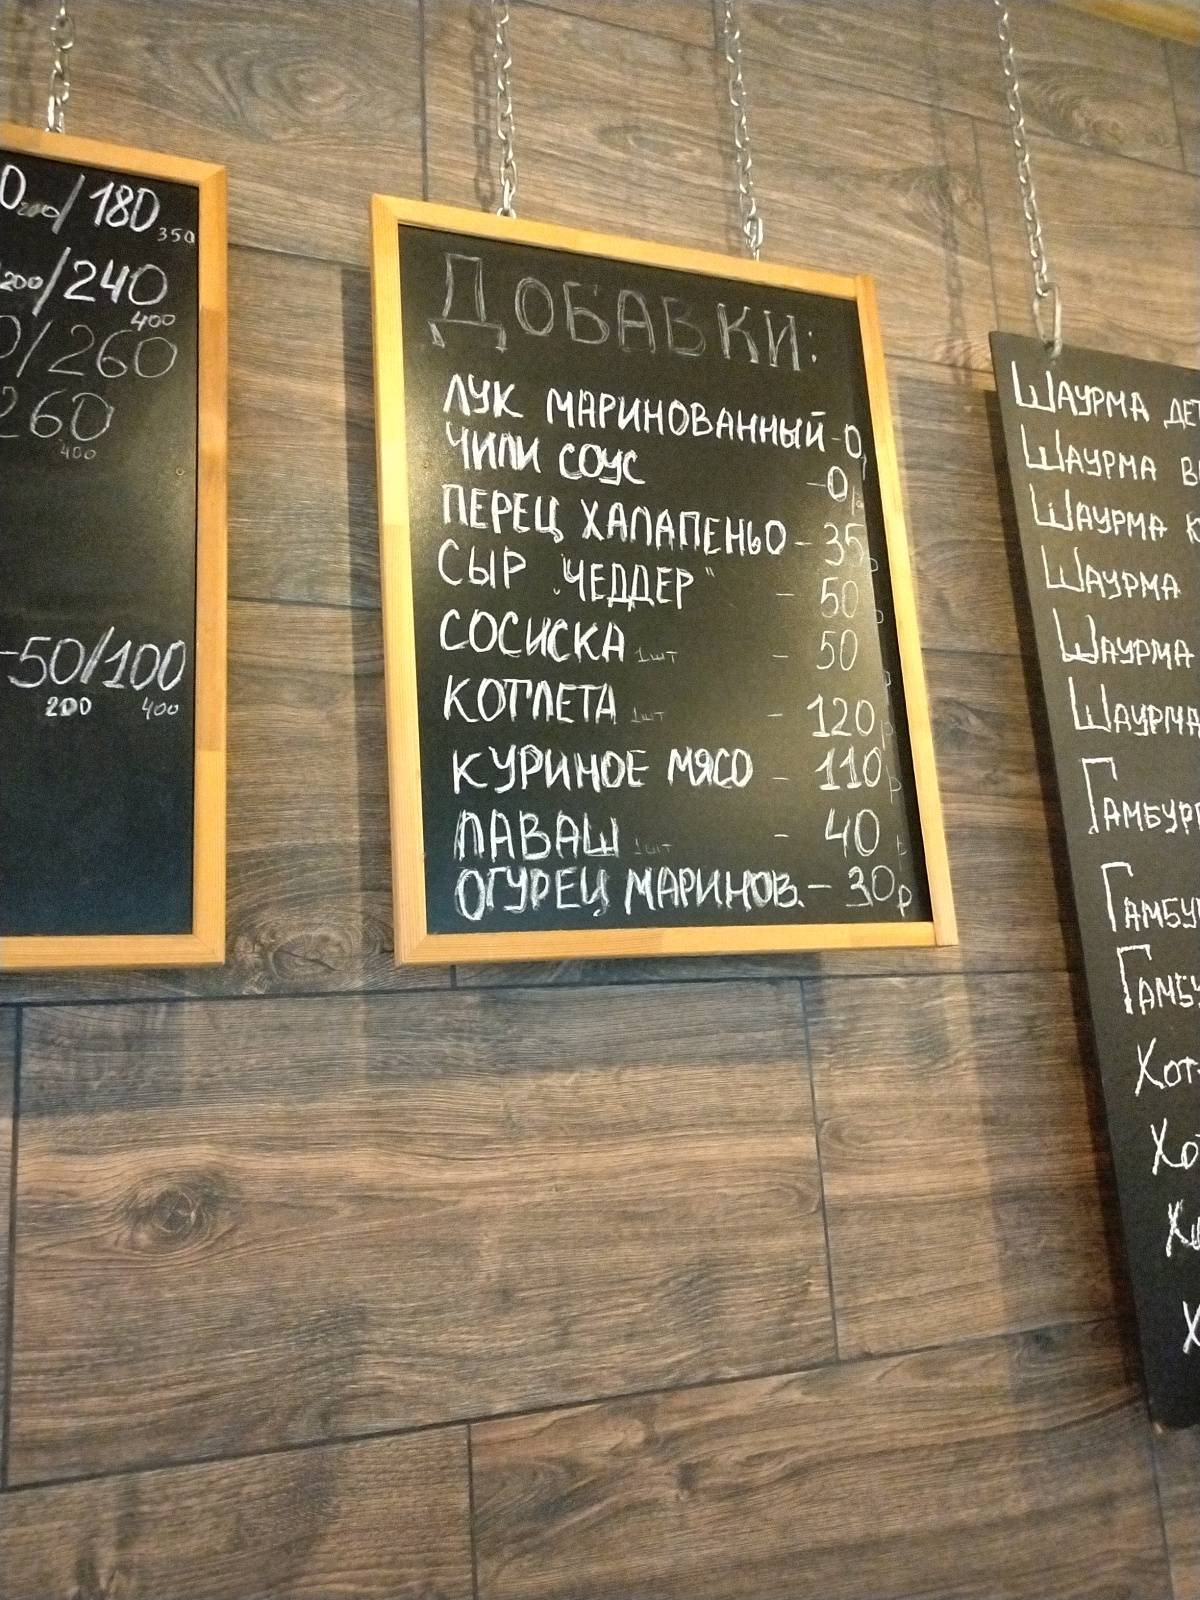 0 200/180 350
200/240 400
0/260
260 400
-50/100
200 400
ДОБАВКИ:
ЛУК МАРИНОВАННЫЙ-0р
ЧИЛИ СОУС -0р
ПЕРЕЦ ХАЛАПЕНЬО-35р
СЫР "ЧЕДДЕР" - 50р
СОСИСКА 1шт - 50р
КОТЛЕТА 1шт - 120р
КУРИНОЕ МЯСО - 110р
ЛАВАШ 1шт - 40р
ОГУРЕЦ МАРИНОВ.-30р
ШАУРМА ДЕТ
ШАУРМА В
ШАУРМА К
ШАУРМА
ШАУРМА
ШАУРМА
ГАМБУРГ
ГАМБУР
ГАМБУ
ХОТ-
ХО
Х